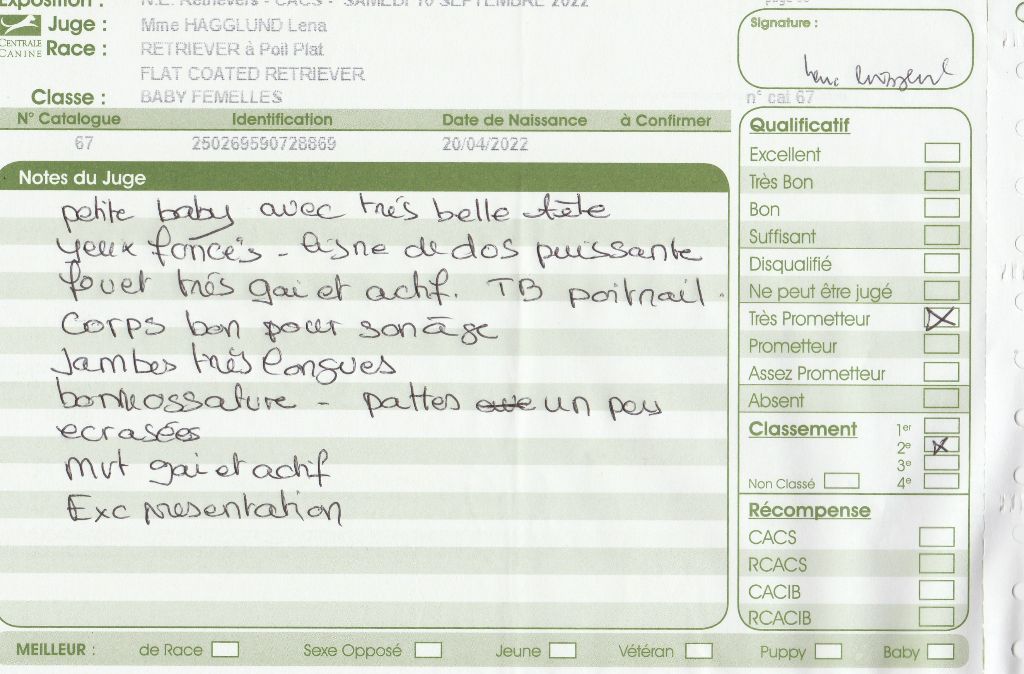 Exposition : N.E. Retrievers - CACS - SAMEDI 10 SEPTEMBRE 2022
Juge : Mme HAGGLUND Lena
CENTRALE CANINE
Race : RETRIEVER à Poil Plat
FLAT COATED RETRIEVER
Classe : BABY FEMELLES
Signature :
n° cat 67
N° Catalogue Identification Date de Naissance à Confirmer
67 250269590728869 20/04/2022
Notes du Juge
petite baby avec très belle tête
yeux foncés - ligne de dos puissante
fouet très gai et actif. TB poitrail.
Corps bon pour son âge
Jambes très longues
bonne ossature - pattes un peu
ecrasées
Mvt gai et actif
Exc presentation
Qualificatif
Excellent
Très Bon
Bon
Suffisant
Disqualifié
Ne peut être jugé
Très Prometteur X
Prometteur
Assez Prometteur
Absent
Classement 1er
2e X
3e
Non Classé 4e
Récompense
CACS
RCACS
CACIB
RCACIB
MEILLEUR : de Race Sexe Opposé Jeune Vétéran Puppy Baby